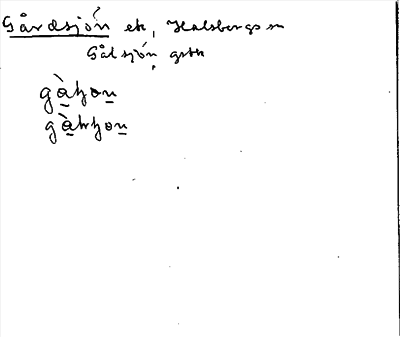 Gårdsjön ek, Halsbergs sn
Gålsjön gstk
gàhon
gàhrhon